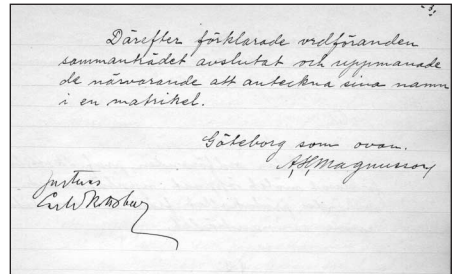 Därefter förklarade ordföranden
sammanträdet avslutat och uppmanade
de närvarande att anteckna sina namn
i en matrikel.
Göteborg som ovan.
A.H. Magnusson
Justeras